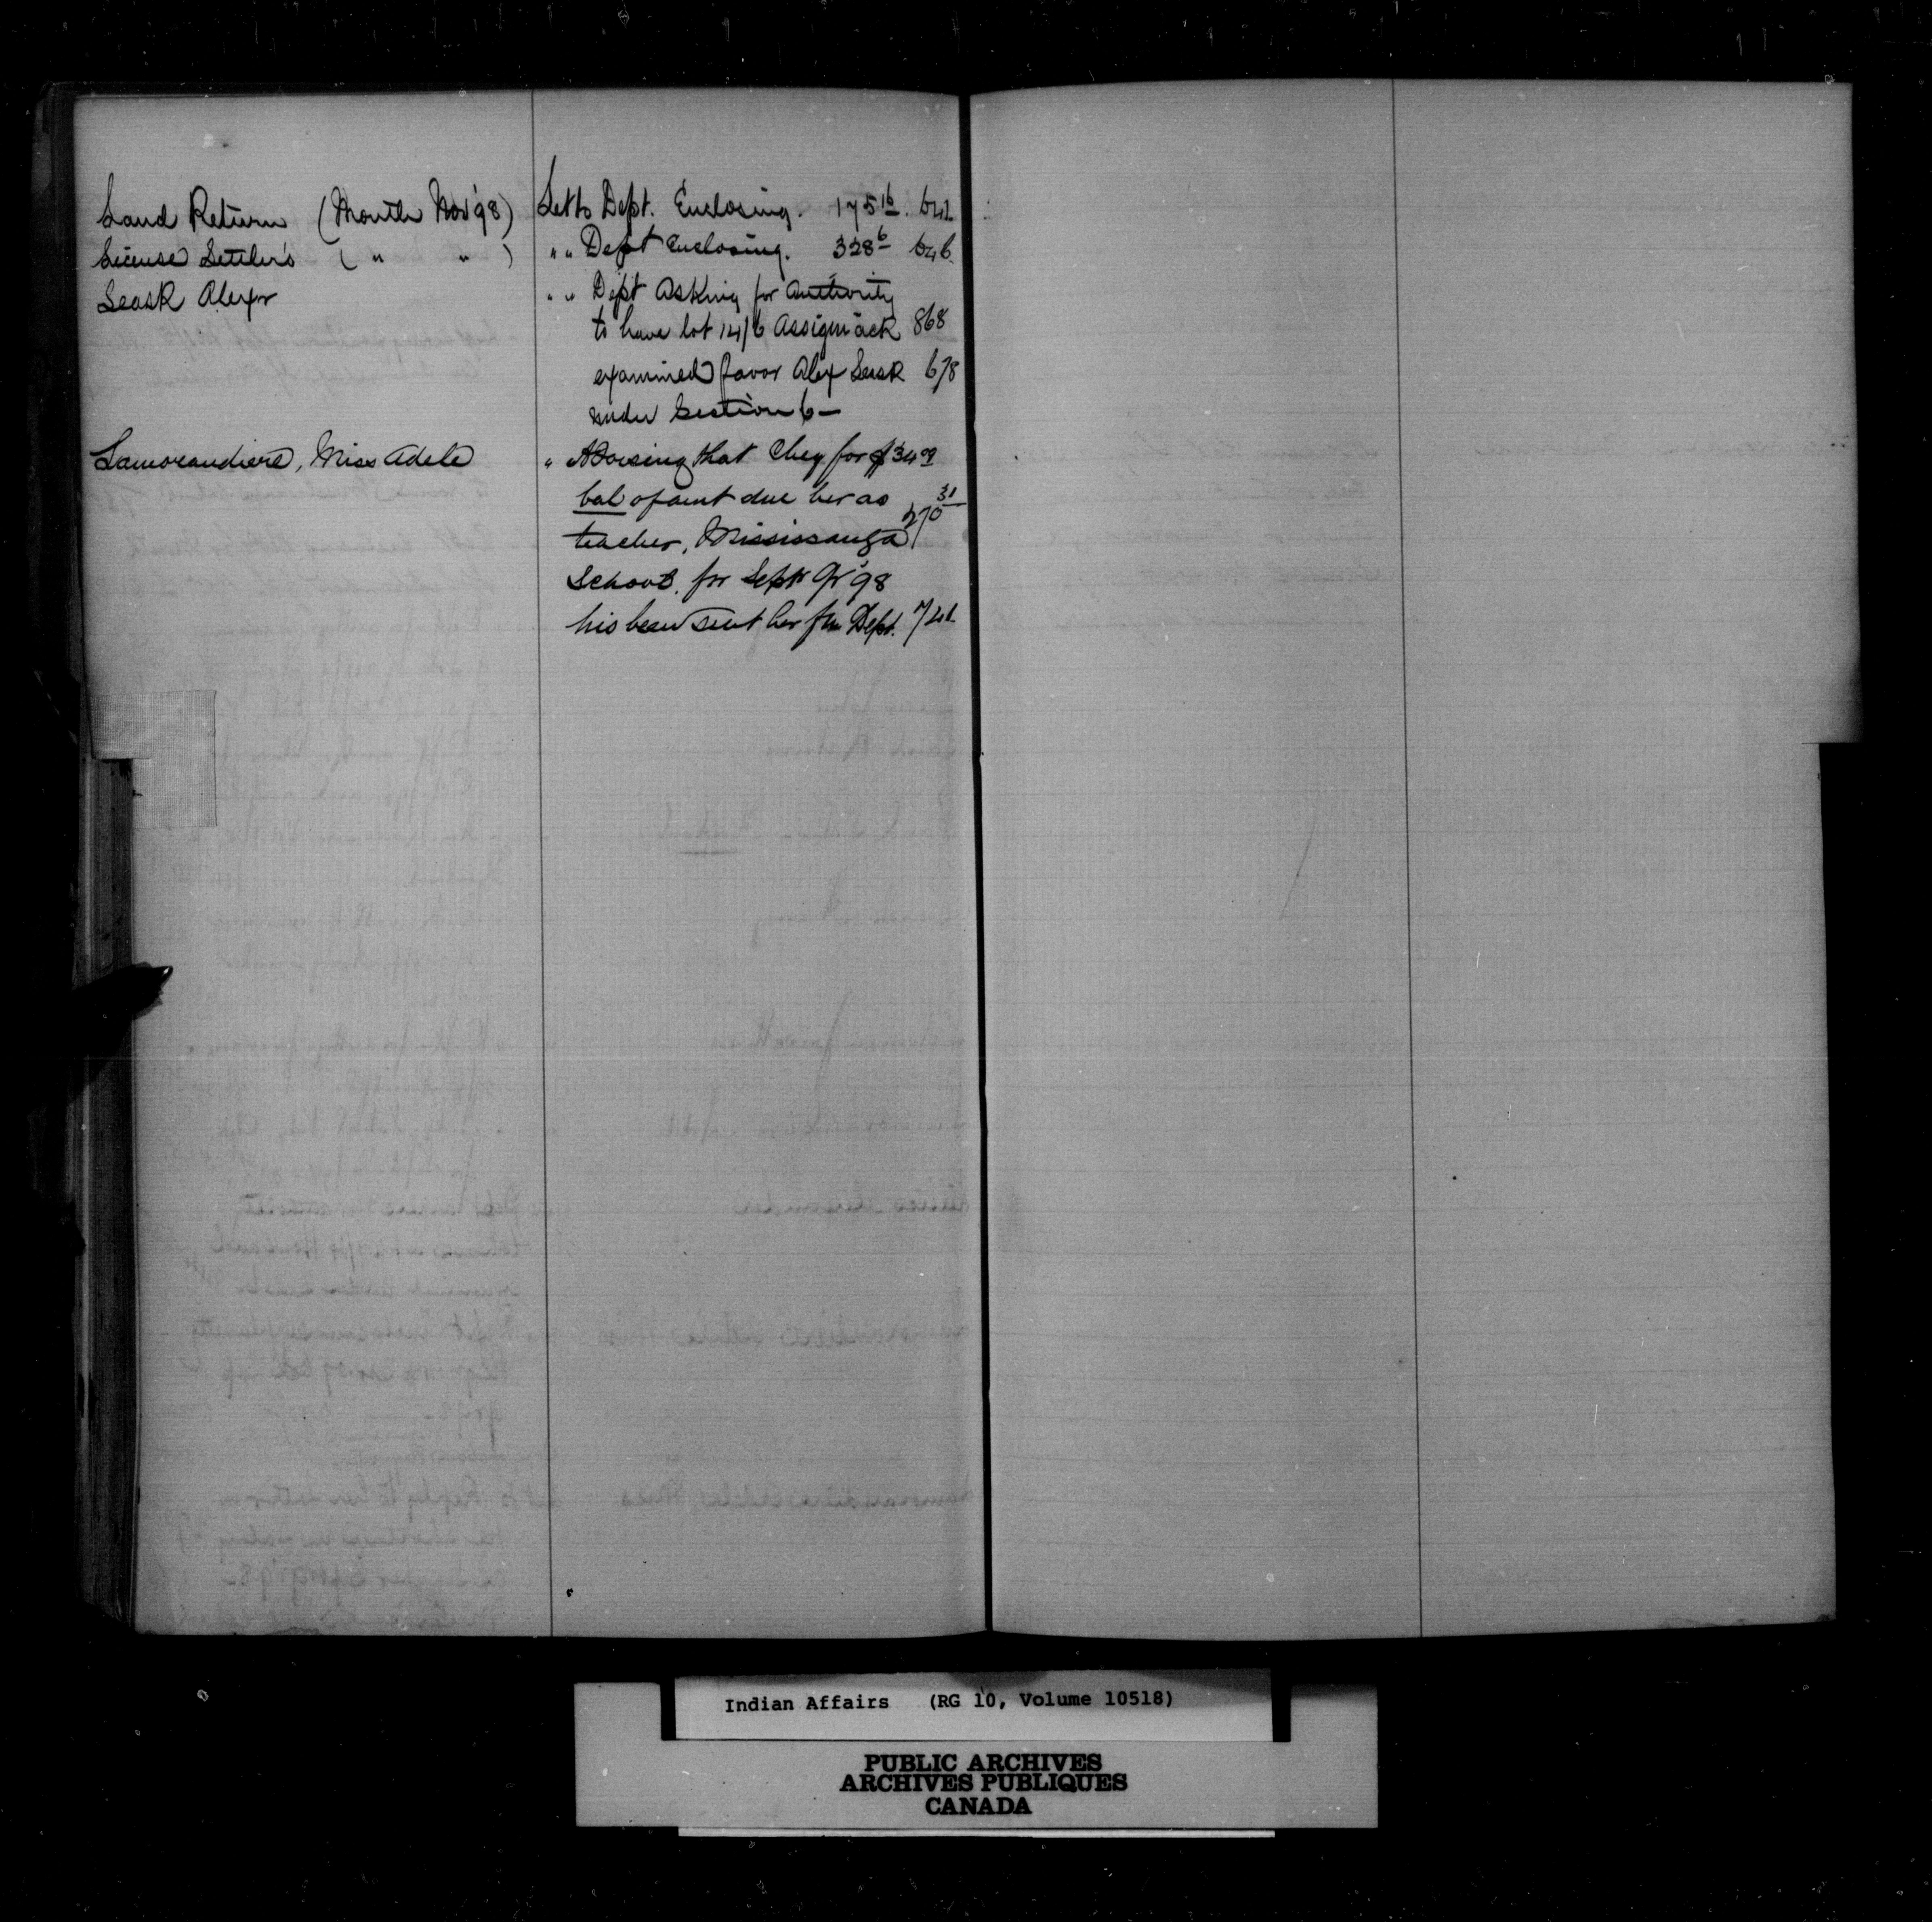 Land Return (Month Nov '98) Let to Dept. Enclosing. 175 16. 641
License Settler's ( " " ) " " Dept Enclosing. 328 6 646
Leask Alexr " " Dept Asking for Authority
to have lot 14/6 Assiginack 868
examined favor Alex Leask 678
under Section 6 —
Lamorandiere, Miss Adele " Advising that Cheq for $34.09
bal of amt due her as 31
teacher, Mississauga 270
School. for Sept Qr '98
his been sent her fm Dept. 741
Indian Affairs (RG 10, Volume 10518)
PUBLIC ARCHIVES
ARCHIVES PUBLIQUES
CANADA